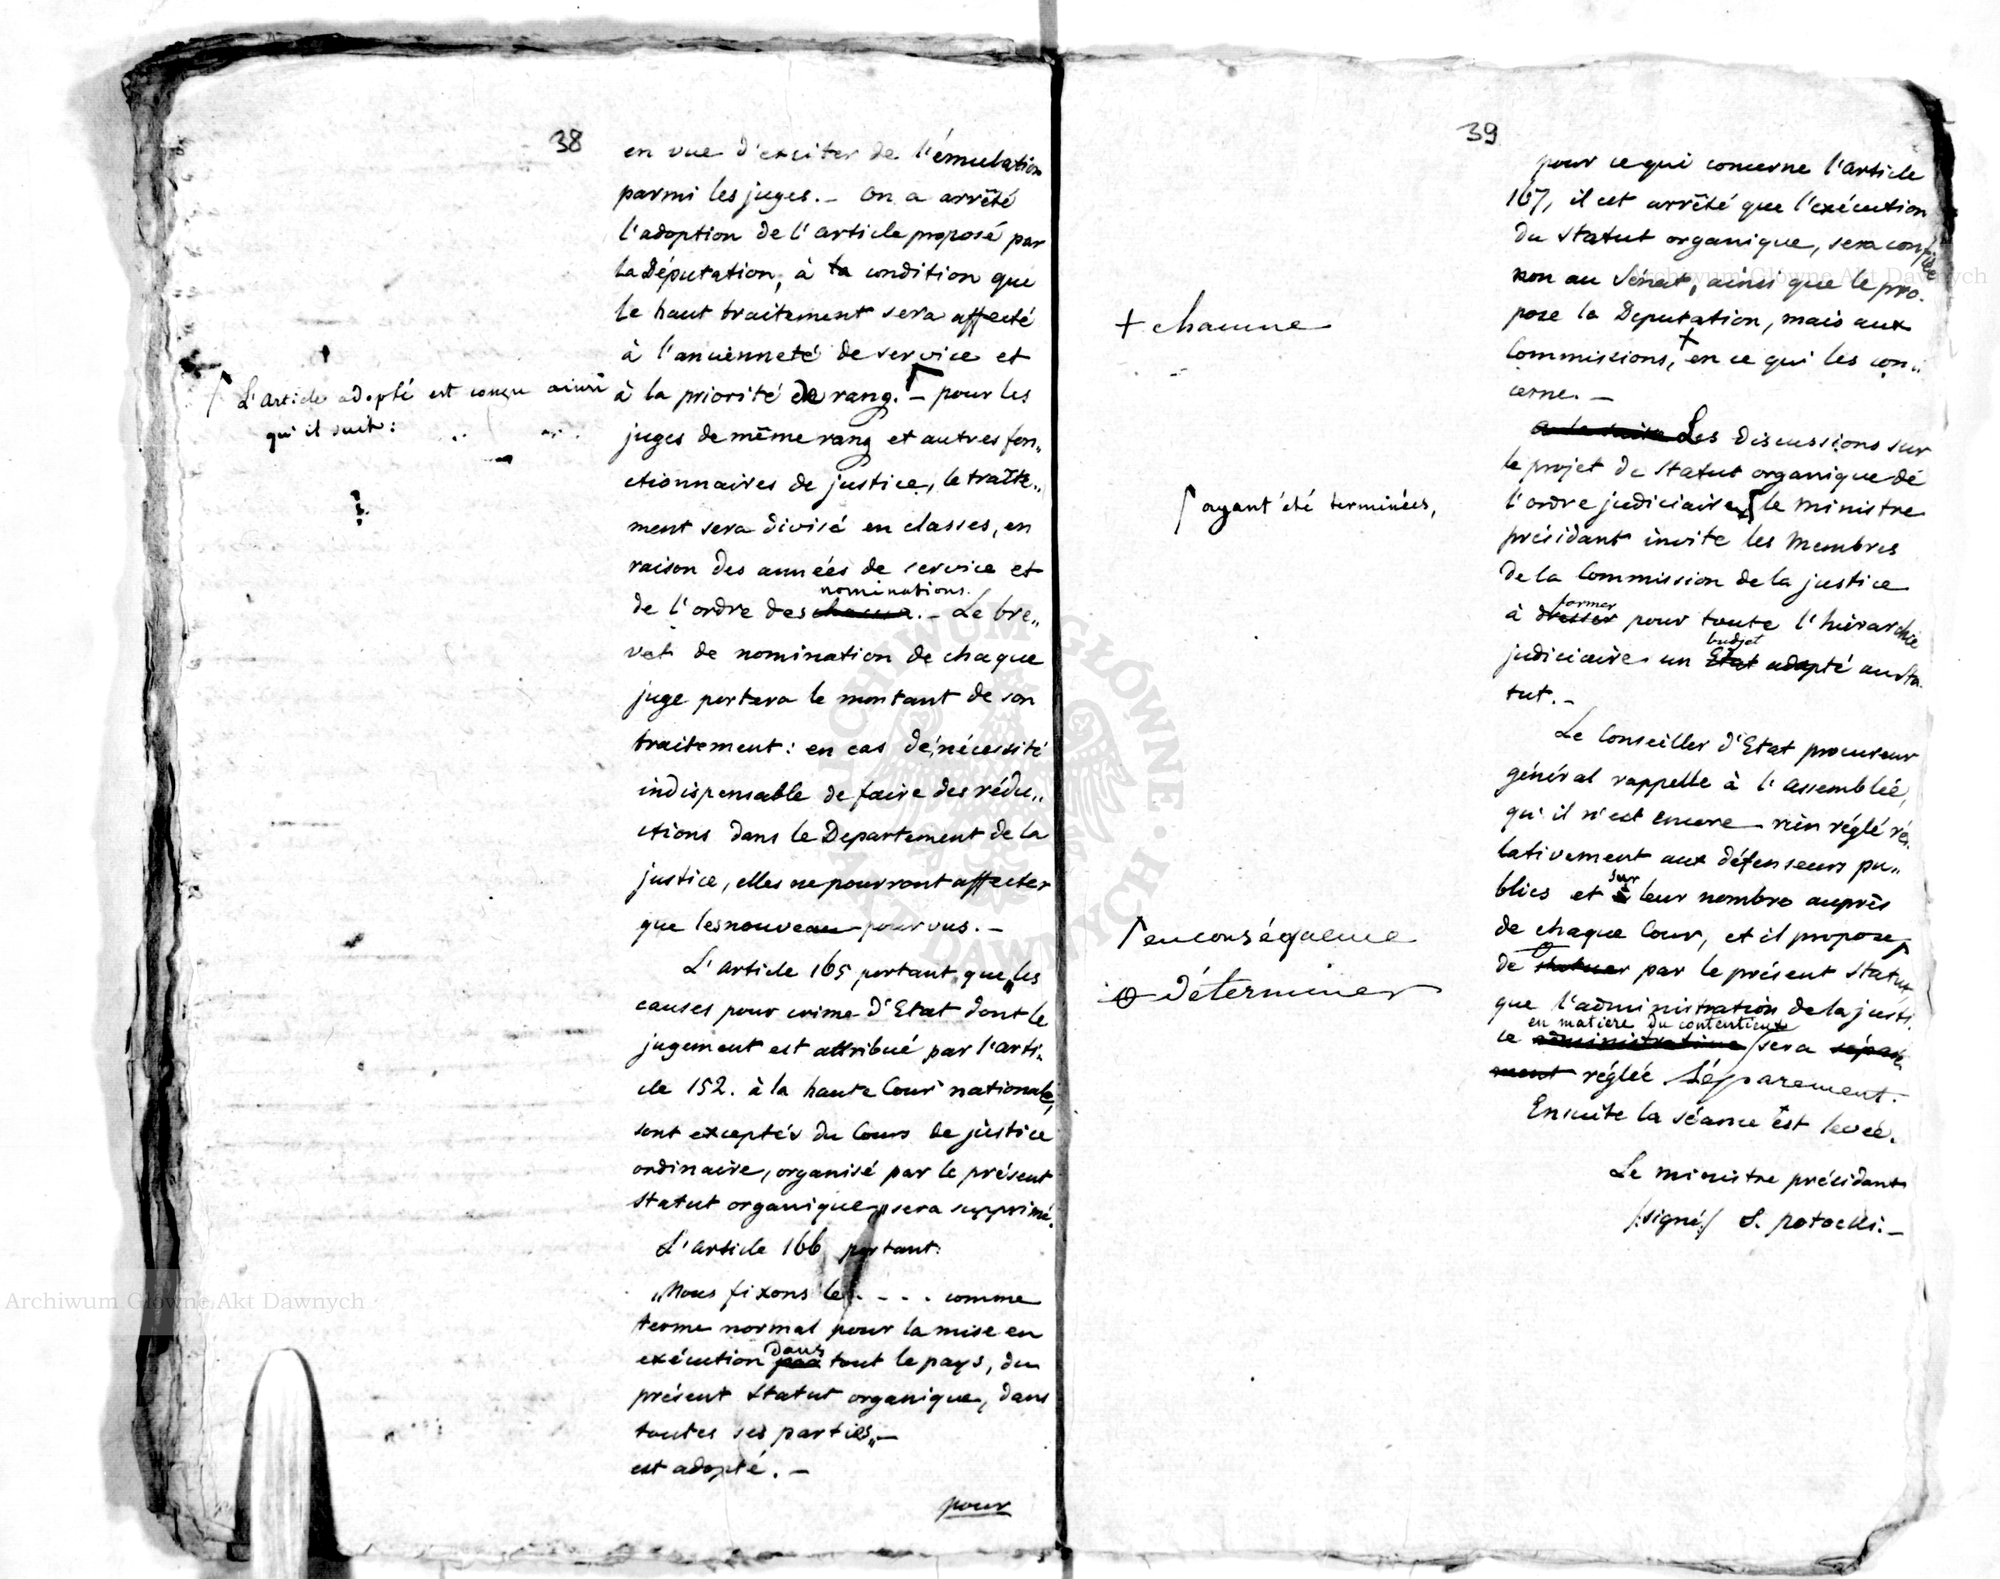 38
en vue d'exciter de l'émulation
parmi les juges. – On a arrêté
l'adoption de l'article proposé par
la Députation, à la condition que
le haut traitement sera affecté
à l'ancienneté de service et
à la priorité de rang. – pour les
juges de même rang et autres fon„
ctionnaires de justice, le traite„
ment sera divisé en classes, en
raison des années de service et
nominations.
de l'ordre des . – Le bre„
vet de nomination de chaque
juge portera le montant de son
traitement : en cas de nécessité
indispensable de faire des rédu„
ctions dans le Departement de la
justice, elles ne pourront affecter
que les nouveau pourvus. –
L'article 165 portant que „les
causes pour crime d'Etat dont le
jugement est attribué par l'arti„
cle 152. à la haute Cour nationale,
sont exceptés du Cours de justice
ordinaire, organisé par le présent
Statut organique„ sera supprimé.
L'article 166 portant:
„Nous fixons le . - . . comme
terme normal pour la mise en
dans
exécution par tout le pays, du
présent Statut organique, dans
toutes ses parties„ –
est adopté. –
pour
L'article adopté est conçu ainsi
qu'il suit:
39
pour ce qui concerne l'article
167, il est arrêté que l'exécution
du Statut organique, sera confiée
non au Sénat, ainsi que le pro„
pose la Deputation, mais aux
Commissions, + en ce qui les con„
cerne. –
a la suite Les discussions sur
le projet de Statut organique de
l'ordre judiciaire le Ministre
présidant invite les Membres
de la Commission de la justice
former
à dresser pour toute l'hierarchie
budjet
judiciaire un Etat adapté au sta„
tut. –
Le Conseiller d'Etat procureur
général rappelle à l'assemblée,
qu'il n'est encore rien réglé ré„
lativement aux défenseurs pu„
sur
blics et à leur nombre auprès
de chaque Cour, et il propose
de statuer par le présent Statut
que l'administration de la justi„
en matière du contentieux
ce administrative sera séparé
ment réglée séparement.
Ensuite la séance est levée.
Le ministre présidant
/:signé:/ S. potocki. –
+ chacune
ayant été terminées,
en conséquence
déterminer
Archiwum Główne Akt Dawnych
Archiwum Główne Akt Dawnych
ARCHIWUM GŁÓWNE AKT DAWNYCH